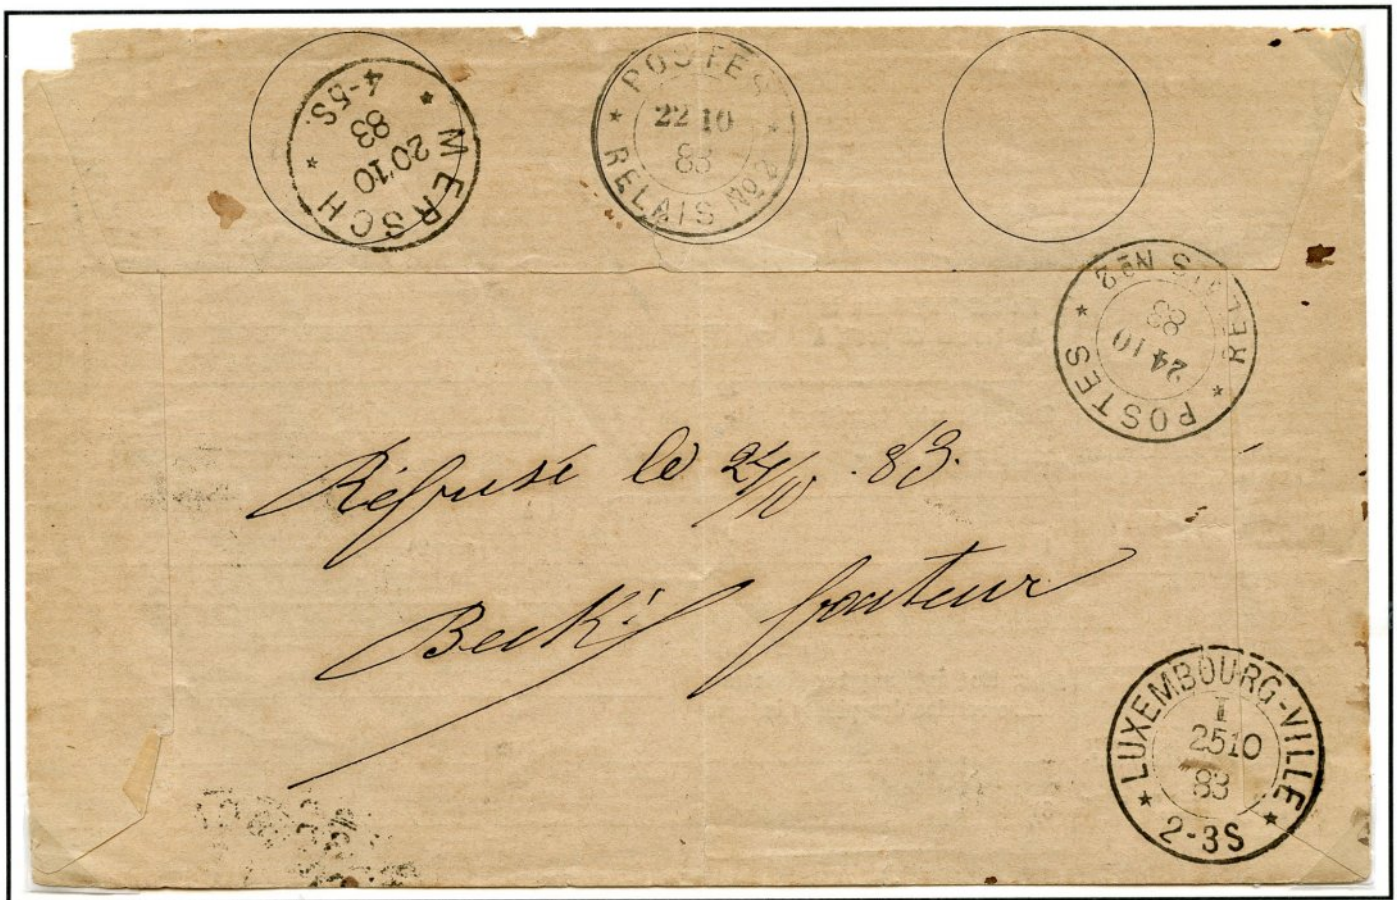 * MERSCH *
20 10
83
4-5S.
* POSTES *
22 10
83
RELAIS No 2
* POSTES *
24 10
83
RELAIS No 2
Réfusé le 24/10. 83.
facteur
LUXEMBOURG-VILLE
I
25 10
83
* 2-3S *